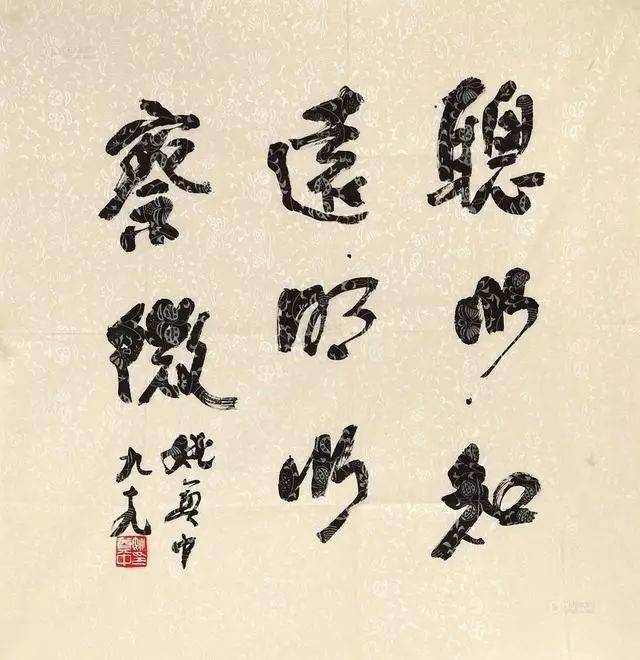 聰以知
遠明以
察微
姚奠中
九十九